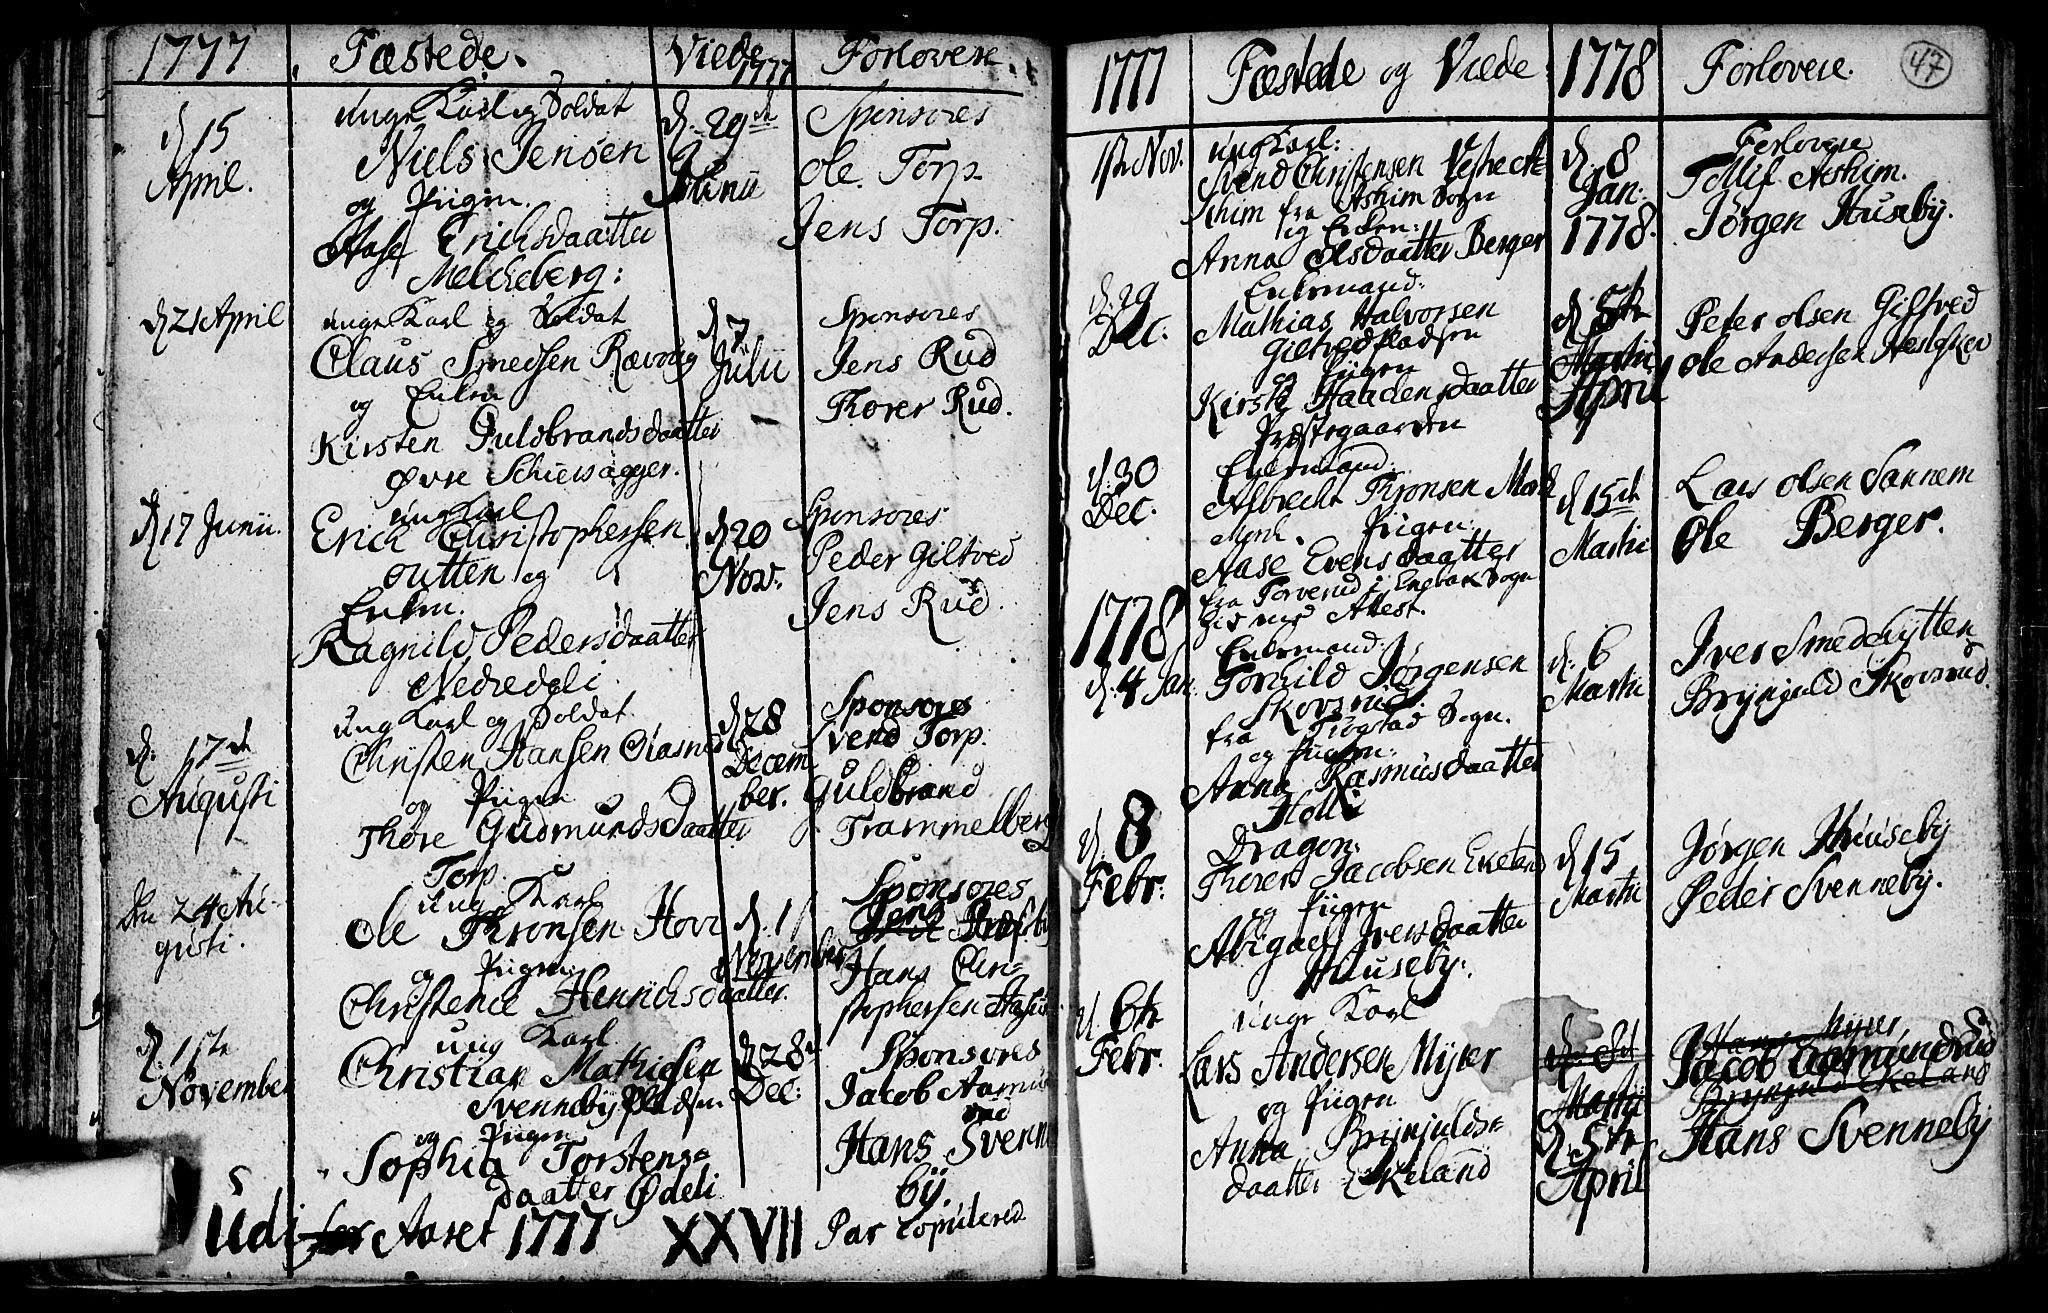 1777 Fæstede. Viede 1777 Forlovere.
d. 15 April.
unge Karl og Soldat
Niels Jensen
og Pigen.
Aase Erichsdaatter
Melcheberg:
d. 29de Junii
Sponsores
Ole Torp
Jens Torp.
d. 21 April
unge Karl og Soldat
Claus Smedsen Rævnig
og Enken
Kirsten Guldbrandsdaatter
Øvre Schiersagger.
d. 7 Julii
Sponsores
Jens Rud
Thorer Rud.
d. 17 Junii.
ung Karl
Erich Christophersen
outten og
Enken.
Ragnild Pedersdaatter
Nedredeli.
d. 20 Nov.
Sponsores
Peder Giltved
Jens Rud.
d. 17de Augusti
ung Karl og Soldat
Christen Hansen
og Pigen
Thore Gudmundsdaatter
Torp.
d. 28 Decem
ber.
Sponsores
vend Torp.
Guldbrand
Trammelberg
den 24 Au-
gusti.
ung Karl
Ole Thronsen Hov
og Pigen
Christence Henrichsdaatter.
d. 1 November
Sponsores
Hans Chri-
stophersen
d. 1ste November
ung Karl
Christian Mathisen
Svenneby Pladsen
og Pigen
Sophia Torstens=
daatter Ødeli
d. 28de Dec:
Sponsores
Jacob Aamun
rud
Hans Svenne
by.
Udi for Aaret 1777 XXVII Par Copulered
1777 Fæstede og Viede 1778 Forlovere. 47
1ste Nov.
ung Karl:
Svend Christensen
fra Askim Sogn
og Enken:
Anna Olsdaatter Berger
d. 8 Jan: 1778.
Forlovere
Tollif Askim.
Jørgen Huseby.
d. 29 Dec.
Enkemand:
Mathias Halvorsen
Giltvedpladsen
og Pigen
Kirsti Haagensdaatter
Præstegaarden
d. 5te Martii
April
Peter Olsen Giltved
Ole Andersen
d. 30 Dec.
Enkemand.
Albrecht Thronsen Mork
Mork. Pigen:
Aase Evensdaatter
fra Torverud i Enebak Sogn
Attest.
d. 15de Martii
Lars Olsen Sannem
Ole Berger.
1778
d. 4 Jan.
Enkemand:
Torkild Jørgensen
Skovsrud
fra Trøgstad Sogn.
og Pigen:
Anna Rasmusdaatter
Holli
d. 6 Martii
Iver Smedehytten
Brynjuld Skovsrud.
d. 8 Febr.
Dragon:
Thorer Jacobsen Ekeland
og Pigen
Abigael Iversdaatter
Huuseby.
d. 15 Martii
Jørgen Huuseby
Peder Svenneby.
d. 6te Febr.
Unge Karl
Lars Andersen Myrer
og Pigen
Anna Brynjulds=
daatter Ekeland
Martii
d. 5te April
Hans Myrer
Jacob Aamundrud
Brynjuld Ekeland
Hans Svenneby